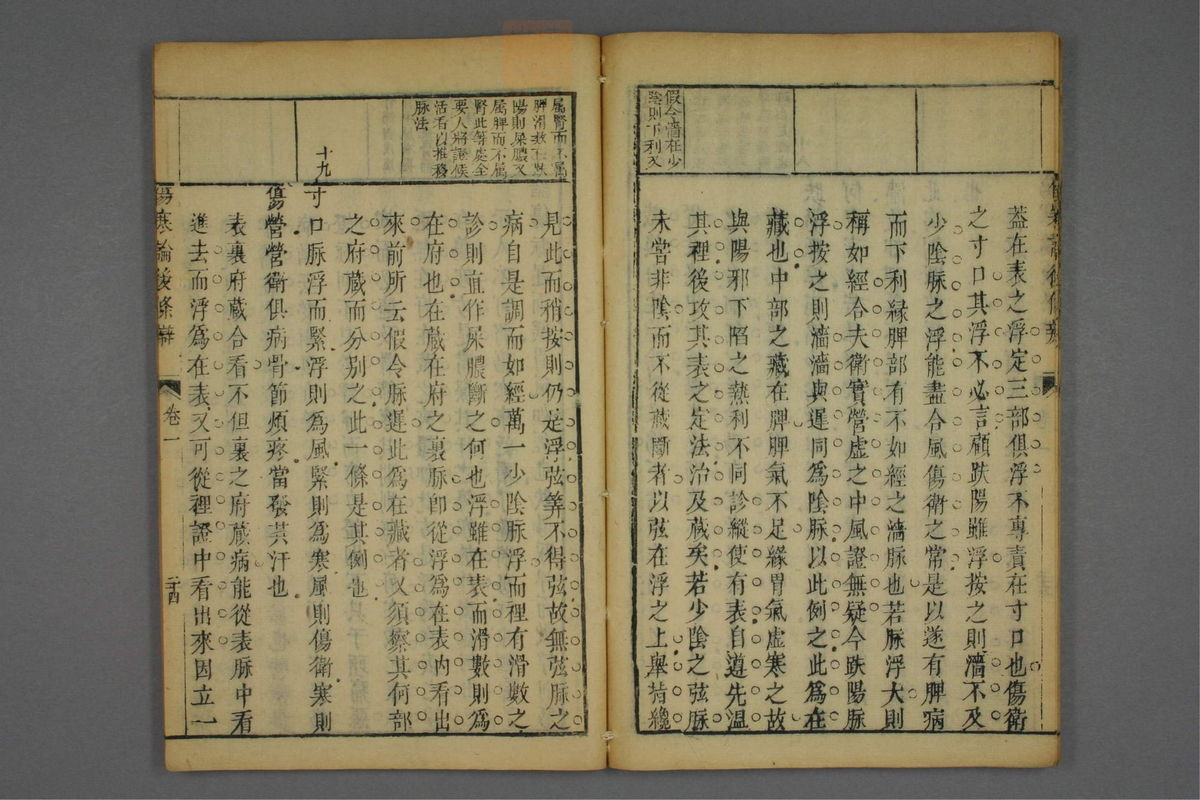 假令濇在少
陰則下利又
蓋在表之浮定三部俱浮不專責在寸口也傷衛
之寸口其浮不必言顧趺陽雖浮按之則濇不及
少陰脉之浮能盡合風傷衛之常是以遂有脾病
而下利緣脾部有不如經之濇脉也若脈浮大則
稱如經合夫衛實營虛之中風證無疑今趺陽脈
浮按之則濇濇與遲同為陰脉以此例之此為在
藏也中部之藏在脾脾氣不足緣胃氣虛寒之故
與陽邪下陷之熱利不同診縱使有表自遵先溫
其裡後攻其表之定法治及藏矣若少陰之弦脉
未嘗非陰而不從藏斷者以弦在浮之上舉指纔
屬腎而不屬
脾滑數在趺
陽則屎膿又
屬脾而不屬
腎此等處全
要人將證候
活看以推移
脉法
見此而稍按則仍是浮弦等不得弦故無弦脉之
病自是調而如經萬一少陰脉浮而裡有滑數之
診則直作屎膿斷之何也浮雖在表而滑數則為
在府也在藏在府之裏脈即從浮為在表內看出
來前所云假令脉遲此為在藏者又須察其何部
之府藏而分別之此一條是其例也
十九
寸口脉浮而緊浮則為風緊則為寒風則傷衛寒則
傷營營衛俱病骨節煩疼當發其汗也
表裏府藏合看不但裏之府藏病能從表脉中看
進去而浮為在表又可從裡證中看出來因立一
傷寒論後條辯
卷一
二十四